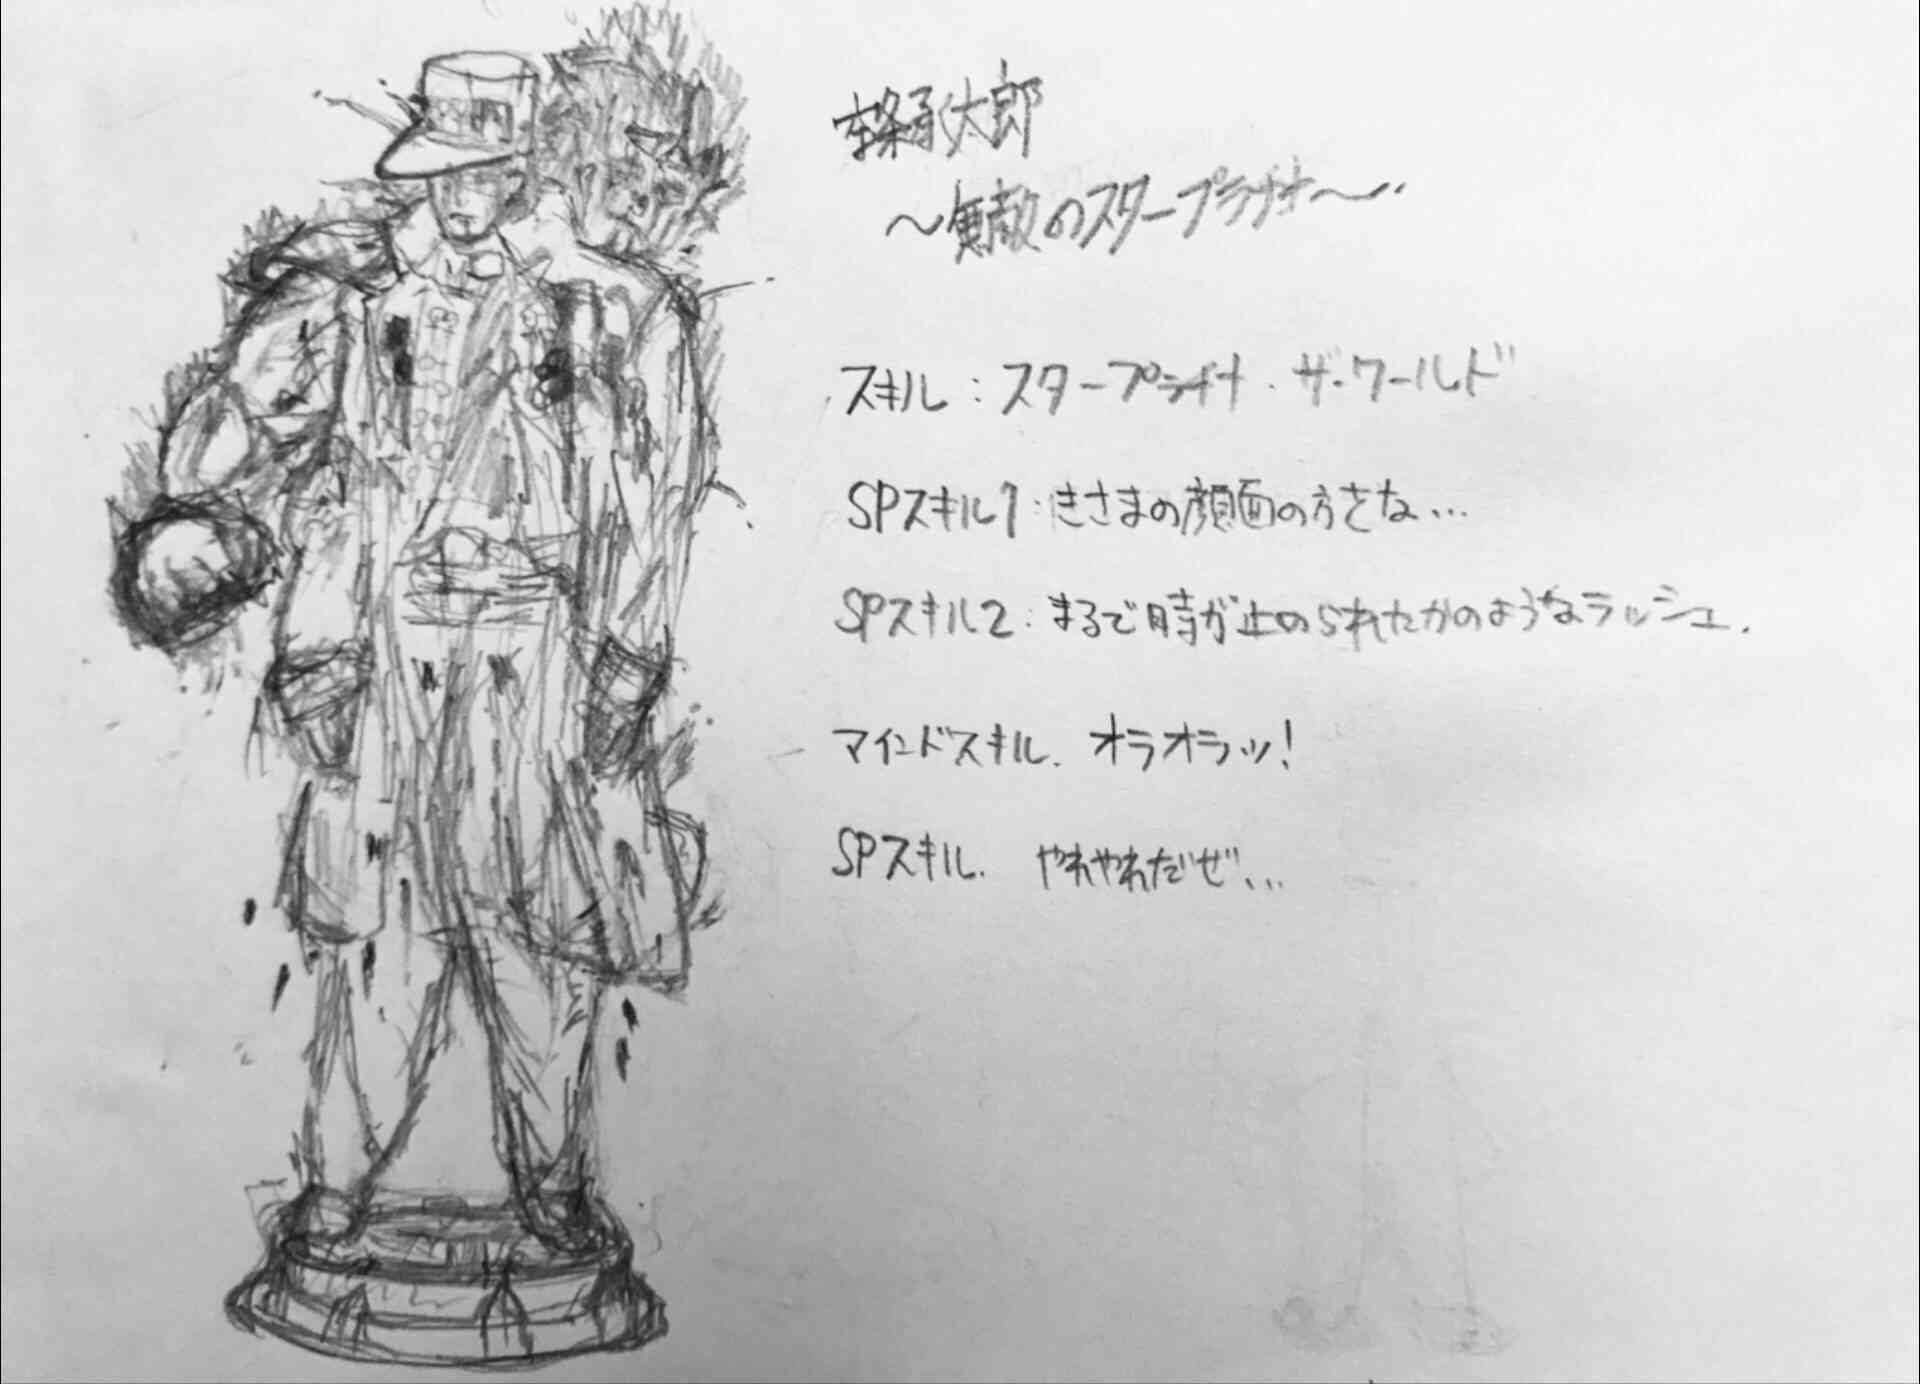 空条承太郎
〜無敵のスタープラチナ〜
スキル：スタープラチナ・ザ・ワールド
SPスキル1：きさまの顔面の方さな…
SPスキル2：まるで時が止められたかのようなラッシュ.
マインドスキル. オラオラッ!
SPスキル. やれやれだぜ...